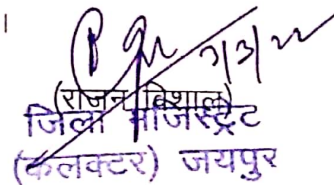 7/3/22
(राजन विशाल)
जिला मजिस्ट्रेट
(कलक्टर) जयपुर